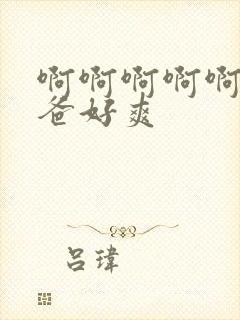 啊啊啊啊啊
爸好爽
吕瑋